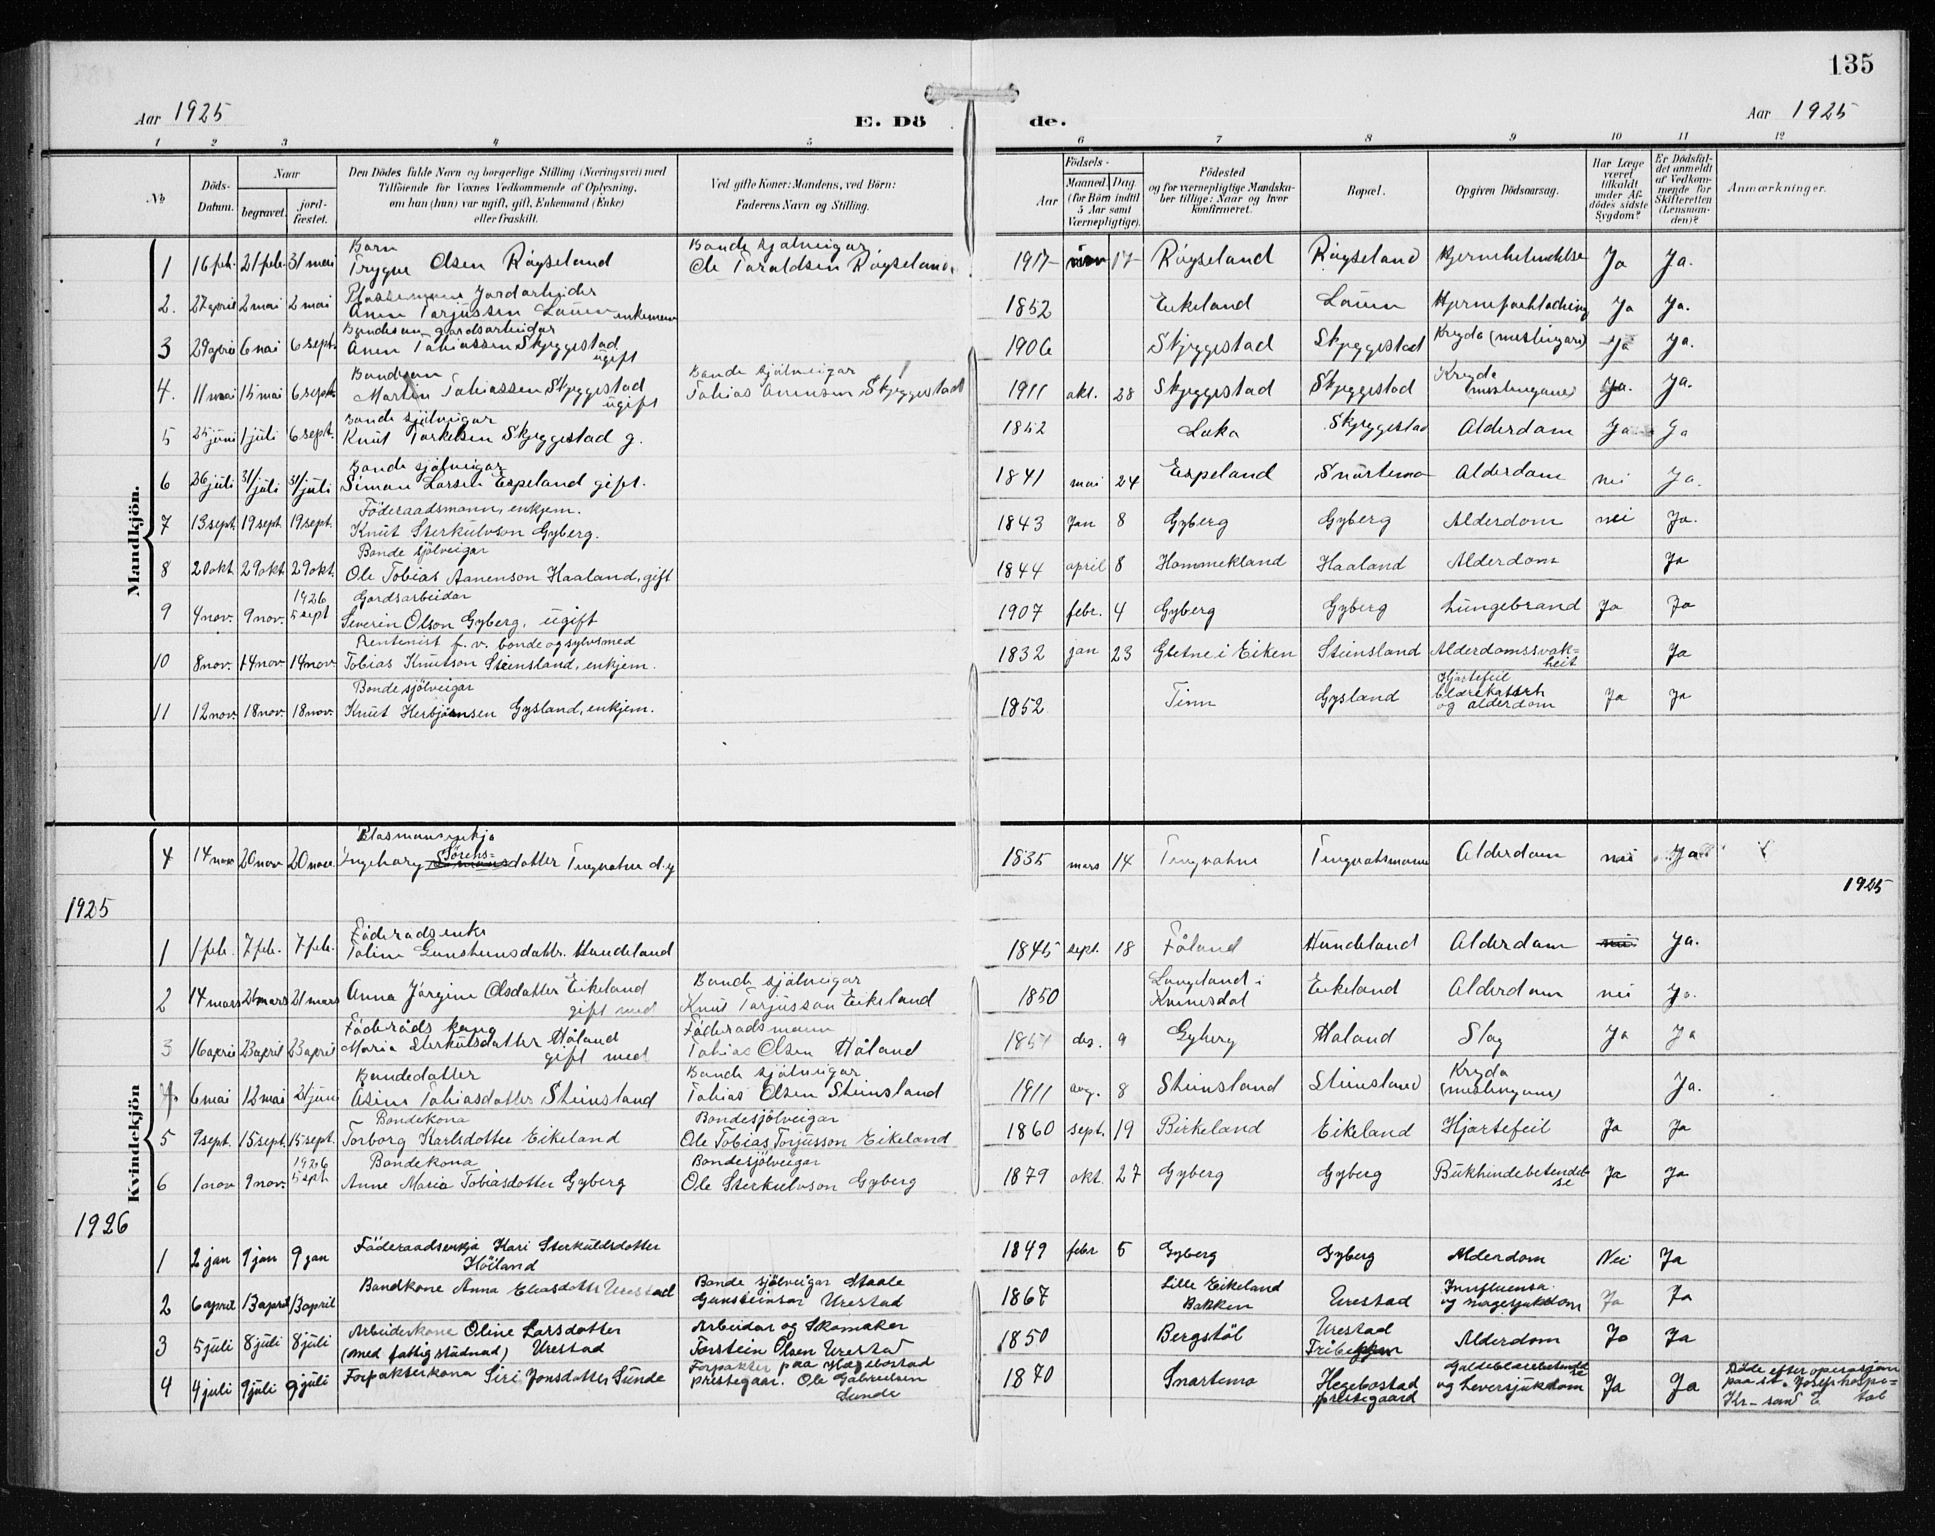 135
Aar 1925 E. Döde. Aar 1925
1 2 3 4 5 6 7 8 9 10 11 12
No Döds-Datum. Naar begravet. jordfæstet. Den Dödes fulde Navn og borgerlige Stilling (Næringsvei) med Tilföiende for Voxnes Vedkommende af Oplysning, om han (hun) var ugift, gift, Enkemand (Enke) eller fraskilt. Ved gifte Koner: Mandens, ved Börn: Faderens Navn og Stilling. Födsels- Aar Maaned. Dag (for Börn indtil 5 Aar samt Værnepligtige). Födested og for værnepligtige Mandskaber tillige: Naar og hvor konfirmeret. Bopæl. Opgiven Dödsaarsag. Har Læge været tilkaldt under Afdödes sidste Sygdom? Er Dödsfaldet anmeldt af Vedkommende for Skifteretten (Lensmanden)? Anmærkninger.
Mandkjön.
Barn Bonde sjølveigar.
1 16 feb. 21 feb. 31 mai Trygve Olsen Røyseland Ole Taraldsen Røyseland 1917 17 Røyseland Røyseland Hjernebetendelse Ja Ja.
Jordarbeider
2. 27 april 2 mai 2 mai Anen Tarjussen Lauen enkemann 1852 Eikeland Lauen Ja Ja.
Bondeson gardsarbeidar
3 29 april 6 mai 6 sept. Anen Tobiassen Skjeggestad ugift 1906 Skjeggestad Skjeggestad Kryda (meslingar) Ja Ja.
Bondeson Bonde sjølveigar
4. 11 mai 15 mai 6 sept. Martin Tobiassen Skjeggestad ugift Tobias Anensen Skjeggestad 1911 okt. 28 Skjeggestad Skjeggestad Kryda (meslingane) Ja. Ja.
Bonde sjølveigar
5 25 juni 1 juli 6 sept. Knut Torkelsen Skjeggestad g. 1852 Skjeggestad Alderdom Ja Ja
Bonde sjølveigar
6 26 juli 31/juli 31/juli Simon Larsen Espeland gift. 1841 mai 24 Espeland Snartemo Alderdom nei Ja.
Föderaadsmann, enkjem.
7 13 sept. 19 sept. 19 sept. Knut Sterkulvson Gyberg. 1843 Jan 8 Gyberg Gyberg Alderdom nei Ja.
Bonde sjölveigar
8 20 okt. 29 okt. 29 okt. Ole Tobias Aanenson Haaland, gift 1844 april 8 Hommekland Haaland Alderdom Ja
1926 Gardsarbeidar
9 4 nov. 9 nov. 5 sept Severin Olson Gyberg, ugift 1907 febr. 4 Gyberg Gyberg Lungebrand Ja Ja
Rentenist f. v. bonde og sylvsmed
10 8 nov. 14 nov. 14 nov. Tobias Knutson Steinsland, enkjem. 1832 jan 23 Gletne i Eiken Steinsland Alderdomssvakheit Ja
Bonde sjölveigar
11 12 nov. 18 nov. 18 nov. Knut Herbjörnsen Gysland, enkjem. 1852 Tinn Gysland Hjartefeil blærekatarh og alderdom Ja Ja
Kvindekjön
Plasmannsenkja
4 14 nov 20 nov. 20 nov. Ingeborg Sörensdatter Tingvatne 1835 mars 14 Tingvatne Alderdom nei Ja
1925 1925
Föderadsenke
1 1 feb. 7 feb. 7 feb. Toline Gunsteinsdatter. Hundeland 1845 sept. 18 Føland Hundeland Alderdom nei Ja.
Bonde sjølveigar
2 14 mars 21 mars 21 mars Anna Jørgine Olsdatter Eikeland gift med Knut Tarjusson Eikeland 1850 Langeland i Kvinesdal Eikeland Alderdom nei Ja.
Föderåds kona Föderadsmann
3 16 april 23 april 23 april Maria Sterkulsdatter Håland gift med Tobias Olsen Håland des. 9 Gyberg Haland Slag Ja Ja
Bondedatter Bonde sjølveigar
4. 6 mai 12 mai 21 juni Asine Tobiasdatter Steinsland Tobias Olsen Steinsland 1911 aug. 8 Steinsland Steinsland Kryda (meslingane) Ja.
Bondekona Bondesjölveigar
5 9 sept. 15 sept. 15 sept. Torborg Karlsdotter Eikeland Ole Tobias Torjusson Eikeland 1860 sept. 19 Birkeland Eikeland Hjartefeil Ja Ja
1926 Bondekona Bondesjölveigar
6 1 nov 9 nov. 5 sept Anne Maria Tobiasdotter Gyberg Ole Sterkulvson Gyberg 1879 okt. 27 Gyberg Gyberg Bukhindebetendelse Ja Ja
1926
1 2 jan 9 jan 9 jan Föderaadsenkja Kari Sterkuldsdotter Höiland 1849 febr 5 Gyberg Gyberg Alderdom Nei Ja
2 6 april 13 april 13 april Bondkone Anna Eliasdotter Urestad Bonde sjölveigar Staale Gunsteinson Urestad 1867 Lille Eikeland Bakken Urestad Innfluensa og Ja Ja
3 5 juli 8 juli 8 juli Arbeiderkone Oline Larsdotter (med fattigstudnad) Urestad Arbeidar og Skomaker Torstein Olsen Urestad 1850 Bergstöl Urestad Alderdom Ja Ja
4 4 juli 9 juli 9 juli Forpakterkona Siri Jonsdotter Sunde Forpakter paa Hægebostad prestegaar. Ole Gabrielsen Sunde 1870 Snartemo Hegebostad prestegaard Galdeblærebetendelse og Leversjukdom Ja Ja Döde efter operasjon paa st. Josephospital Kr-sand